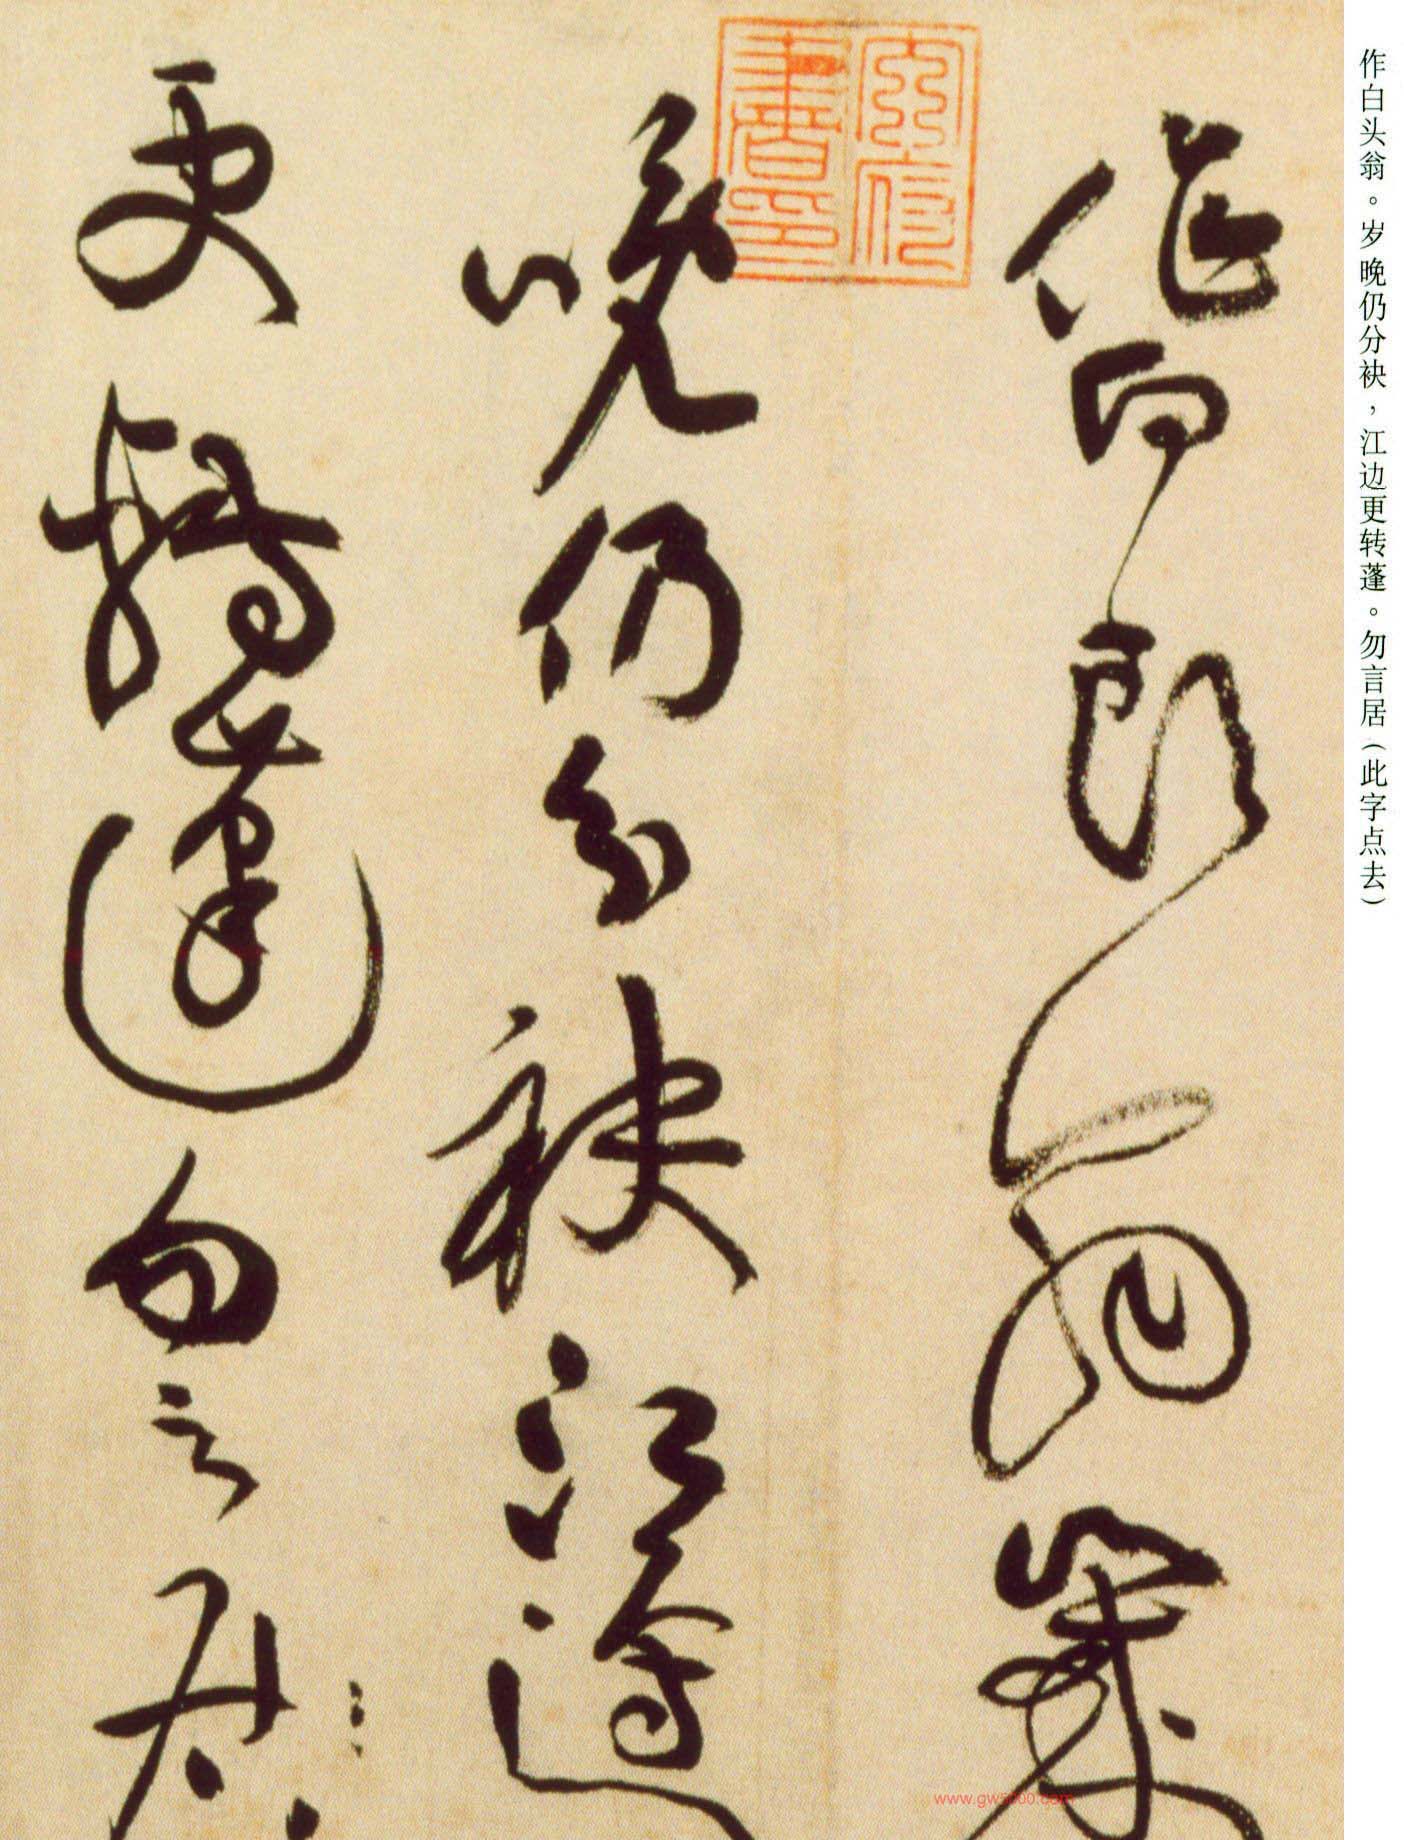 作白头翁。岁晚仍分袂，江边更转蓬。勿言居（此字点去）
作白頭翁歲
晚仍分袂江邊
更轉蓬勿言居
www.gw5000.com